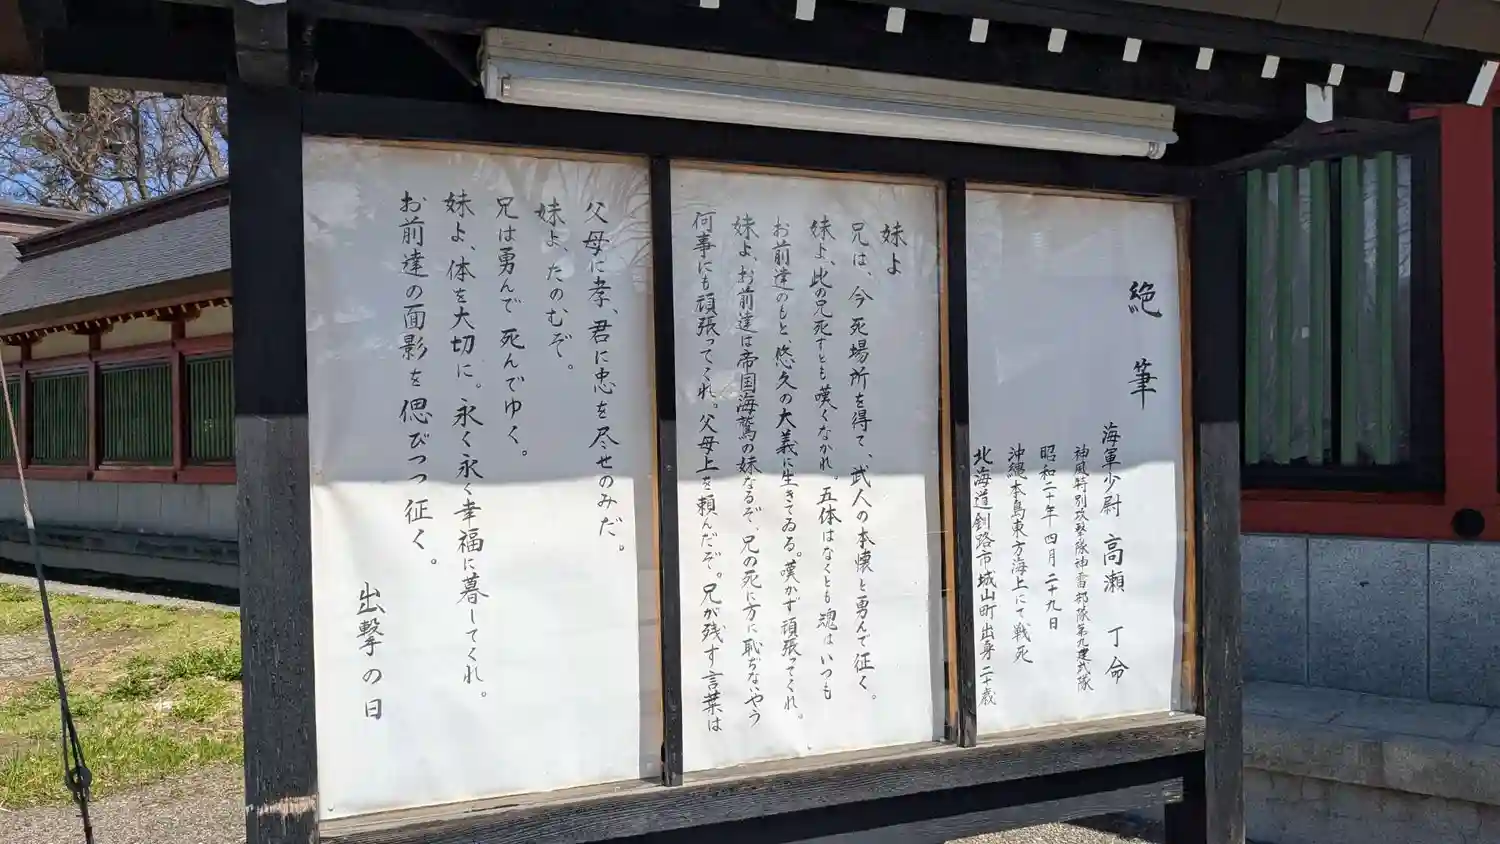 絶筆
海軍少尉 高瀬 丁命
神風特別攻撃隊神雷部隊第九建武隊
昭和二十年四月二十九日
沖縄本島東方海上にて戦死
北海道釧路市城山町出身 二十歳
妹よ
兄は、今死場所を得て、武人の本懐と勇んで征く。
妹よ、此の兄死すとも嘆くなかれ。五体はなくとも魂はいつも
お前達のもと、悠久の大義に生きてゐる。嘆かず頑張ってくれ。
妹よ、お前達は帝国海鷲の妹なるぞ、兄の死に方に恥ぢないやう
何事にも頑張ってくれ。父母上を頼んだぞ。兄が残す言葉は
父母に孝、君に忠を尽せのみだ。
妹よ、たのむぞ。
兄は勇んで死んでゆく。
妹よ、体を大切に。永く永く幸福に暮してくれ。
お前達の面影を偲びつつ征く。
出撃の日